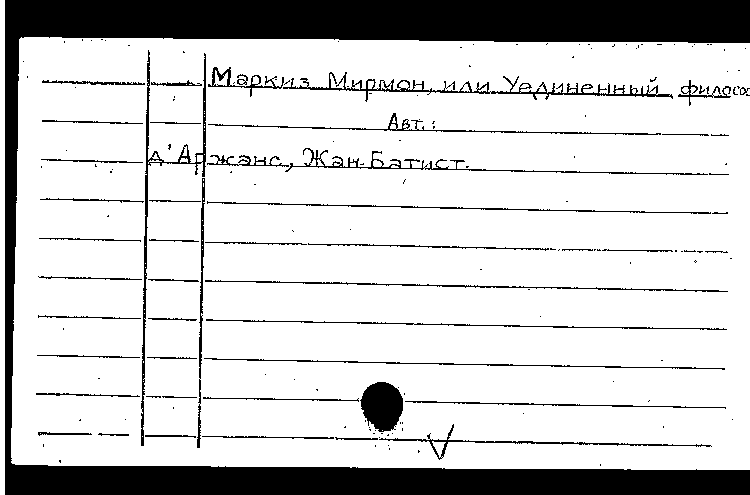 Маркиз Мирмон, или Уединенный филосо
Авт.:
д'Аржанс, Жан-Батист.